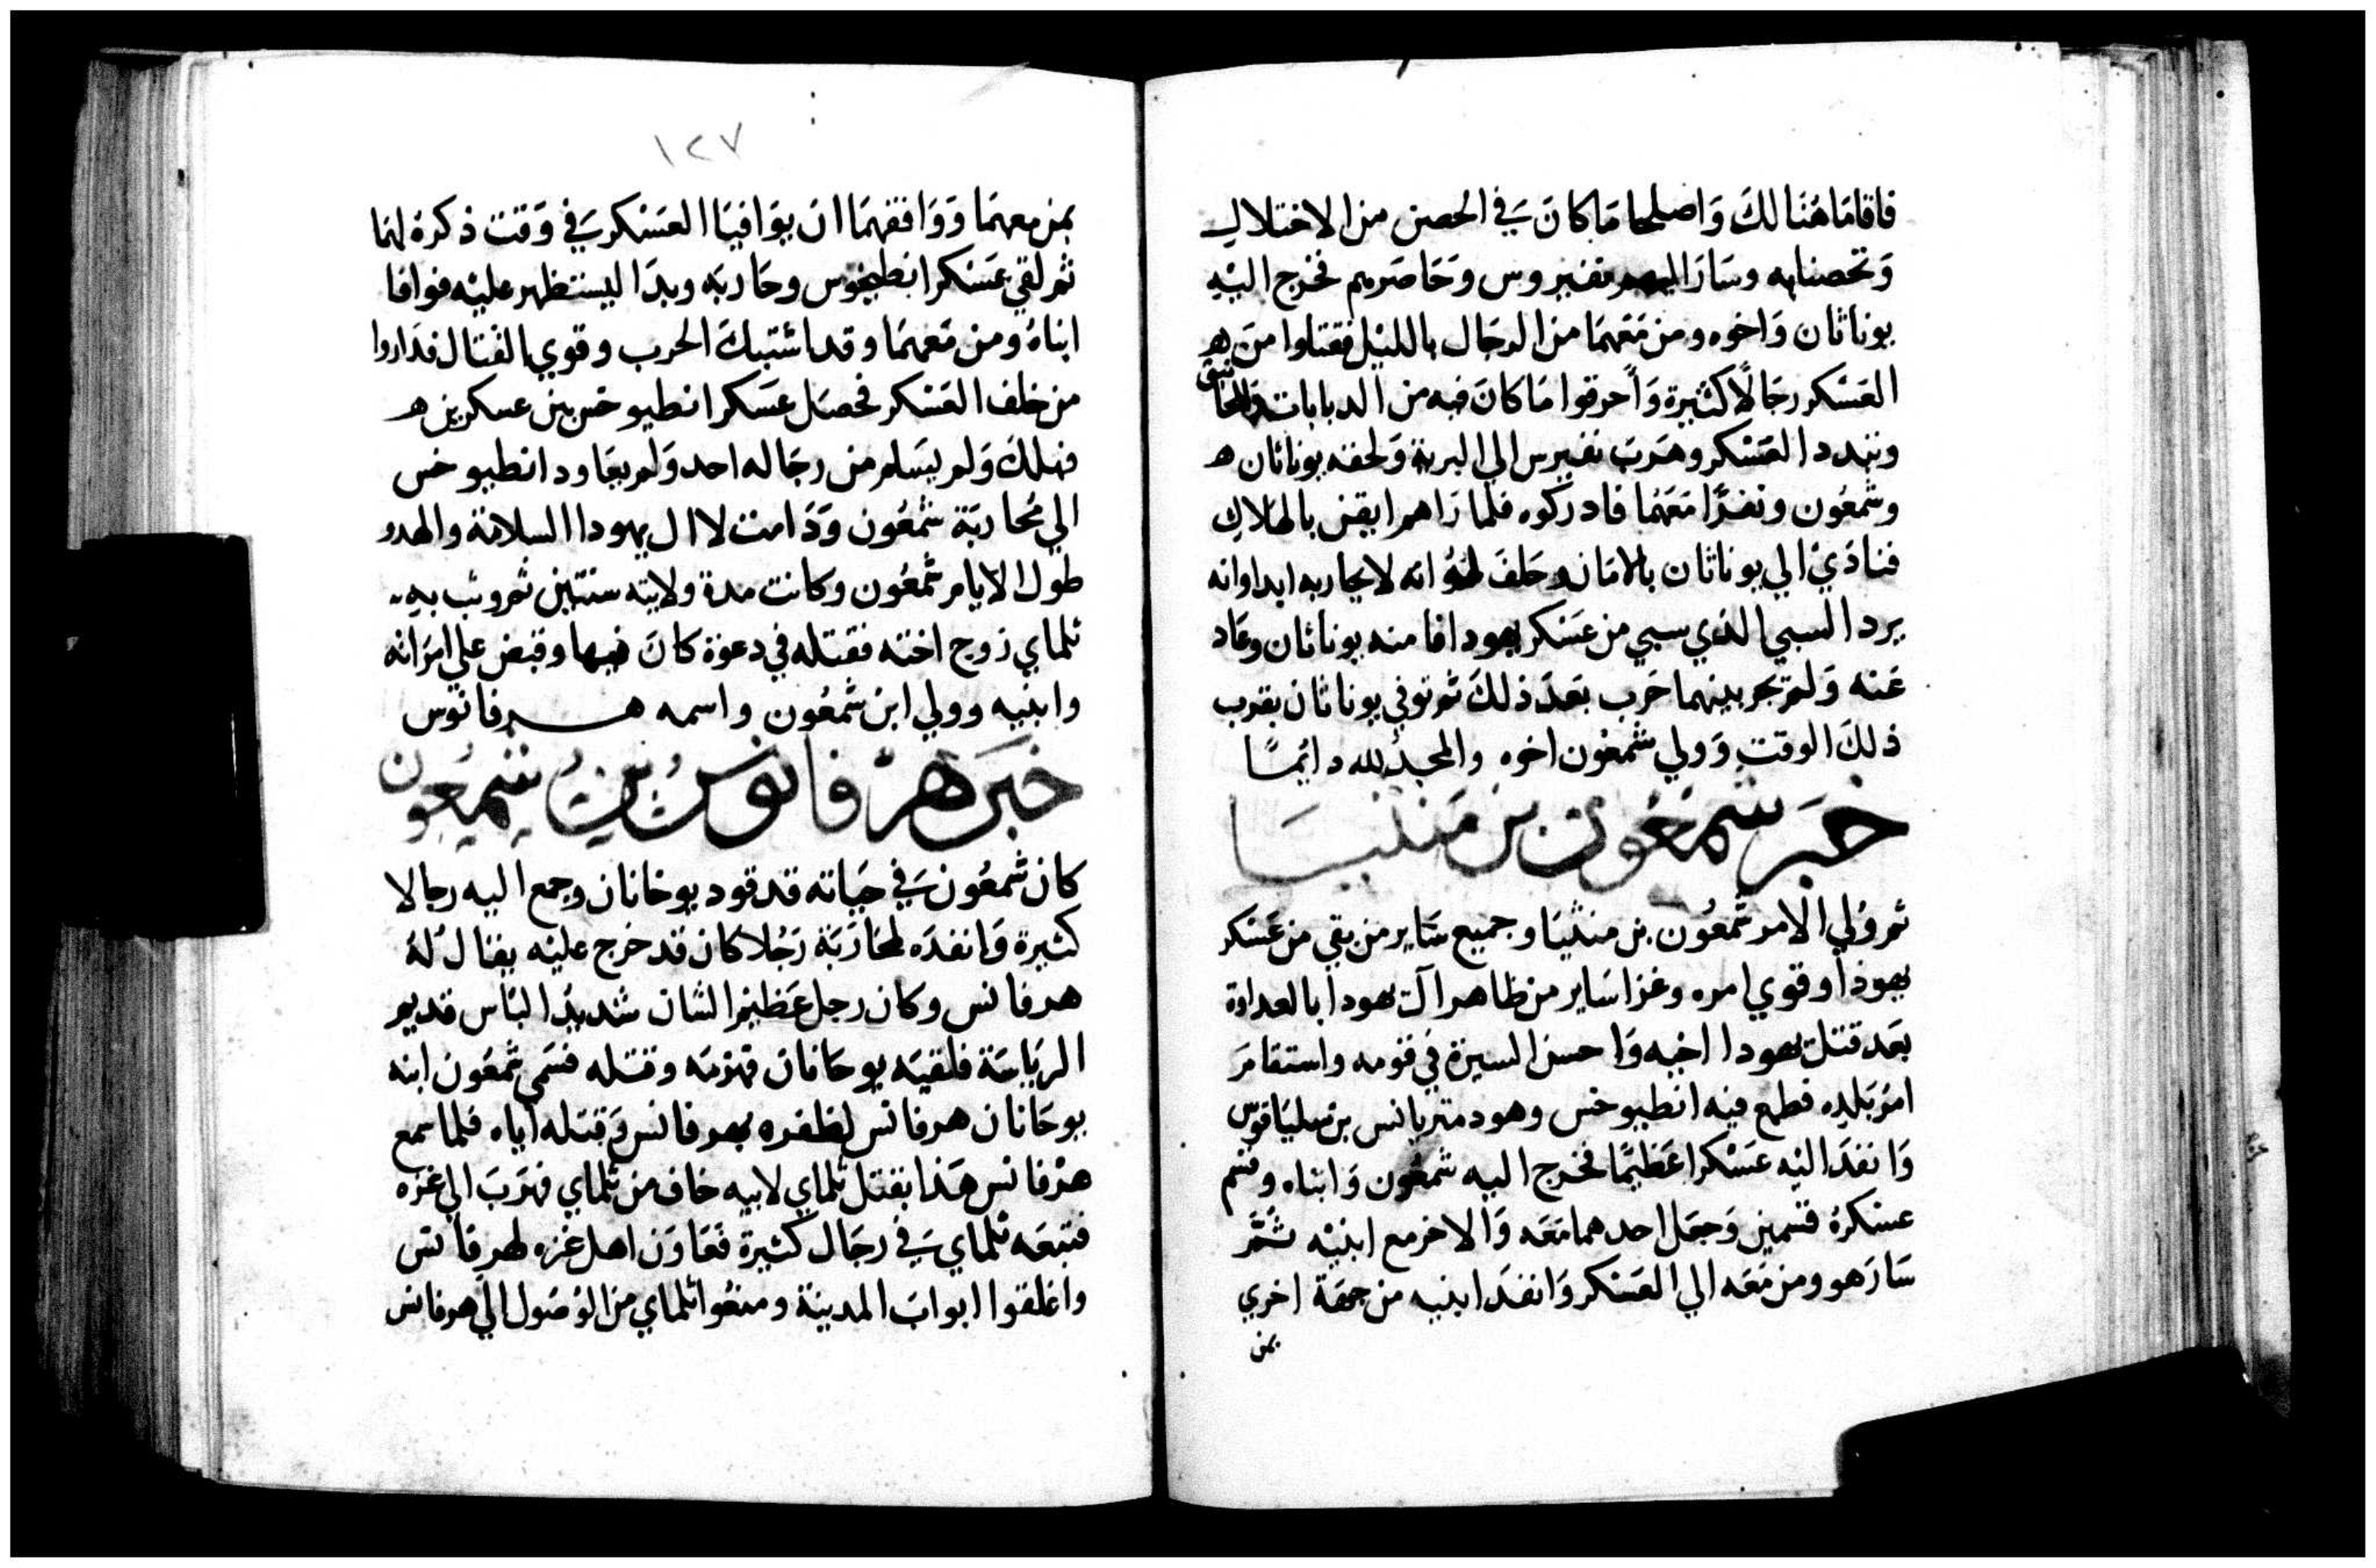 فاقاما هُنَالكَ وَاصلحا مَا كانَ في الحصن من الاختلال
وَتحصنا به وسَارَ اليهم نفنيروس وَحَاصرهم فخرج اليْهِ
يوناثان وَاخوه ومن مَعَهمَا من الرجَال بالليْل فقتلوا مِن هـ
العَسْكر رجَالًا كثيرة وَاَحرقوا مَا كانَ فيه من الدبابات والمجانيق
وتبدد العَسْكر وهَربَ نفنيرس الي البرية وَلحقه يوناثان هـ
وشمعُون ونفرًا مَعَهُمَا فادركوه فلما رَاهم ايقن بالهَلاك
فنادَيْ الي يوناثان بالامَان وحَلفَ لهُ انه لا يحاربه ابدا وانه
يرد السبي الذي سبي من عَسْكر يهودا فامنه يوناثان وعَاد
عَنه وَلم تجر بينهما حَرب بعدَ ذلكَ ثم توفي يوناثان بقرب
ذلكَ الوقتِ وَولي شمعُون اخوه والمجدُ لله دايمًا
خبر شمعُون بن متثيا
ثم وُلي الامر شمعُون بن متثيَا وجميع سَاير من بقي من عَسْكر
يهوذا وقوي امره وغزا سَاير من ظاهر آل يهودا بالعداوة
بعَد قتل يهودا اخيه وَاحسن السيرة في قومه واستقامَ
امرُ بَلدِه فطمع فيه انطيوخس وهو دمتريانس بن سليَاقوس
وَانفذَ اليْه عَسْكرا عَظيمًا فخرج اليه شمعُون وَابناه وقسم
عسْكرهُ قسْمين وَجعَل احدهما مَعَه وَالاخر مع ابنيْه ثمَّ
سَارَ هو ومن مَعَه الي العَسْكر وَانفذَ ابنيه من جهَة اخري
بمن
١٢٧
بمن معهمَا وَوَافقهمَا ان يوَافيَا العَسْكر في وَقت ذكرهُ لهمَا
ثم لقي عَسْكر انطيخوس وحَاربَه وبدَا ليستظهر عليْه فوافا
ابناهُ ومن مَعهمَا وقد اشتبكَ الحرب وقوي القتال فدَاروا
من خلف العَسْكر فحصَل عَسكر انطيوخس بين عسكرين هـ
فهلكَ وَلم يسَلم من رجَاله احد وَلم يعَاود انطيوخس
الي مُحاربَة شمْعُون وَدَامت لاال يهودا السلامَة والهدو
طول الايام شمعُون وكانت مدة ولايته سنتين ثم وثب به
تلماي زوج اخته فقتله في دعوة كانَ فيها وقبض علي امرَاته
وابنيه وولي ابن شمعُون واسمه هـرقانوس
خبَر هرْقانوسُ بنُ شمعُون
كان شمعُون في حيَاته قد قود يوخانان وجمع اليه رجالا
كثيرة وَانفدَه لمحَارَبَة رَجُلا كان قد خرج عليْه يقال لهُ
هرقانس وكان رجل عَظيم الشان شديدُ البَاس قديم
الريَاسَة فلقيَه يوحَانان فهزمَه وقتله فسَمي شمعَون ابنه
يوحَانان هرقانس لظفره بهرقانس وَقتله اياه فلما سمع
هرْقانس هَذا بقتل تلماي لابيه خاف من تلماي فهرَبَ الي غزه
فتبعَه تلماي في رجَال كثيرة فعَاوَن اهل غزه لهرقانس
واغلقوا ابوابَ المدينَة ومنعُوا تلماي من الوُصُول الي هرقانس